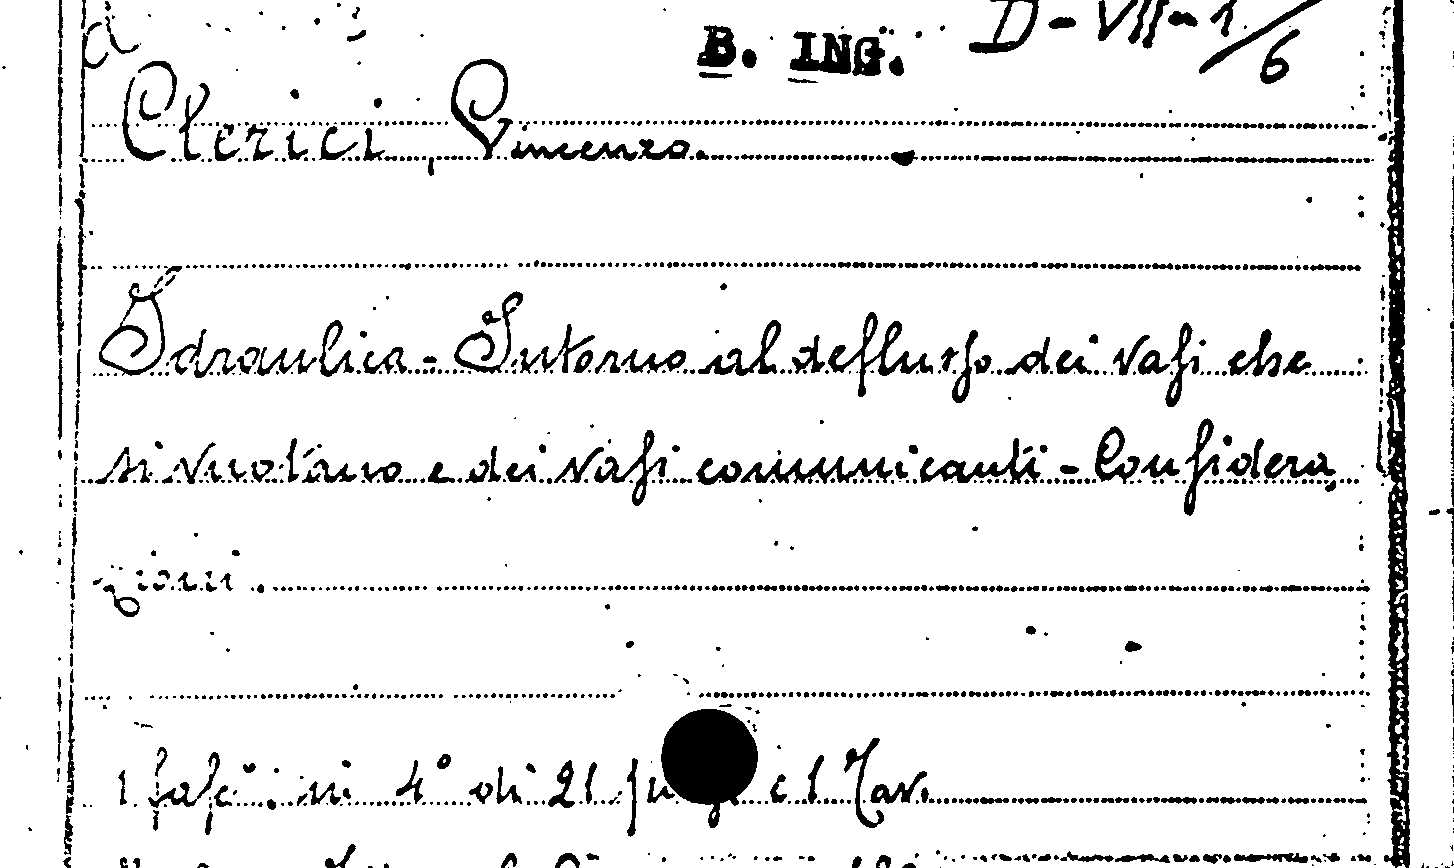 B. ING. D-VII-1/6
Clerici, Vincenzo.
Idraulica - Intorno al deflusso dei vasi che
si vuotano e dei vasi comunicanti - Considera
zioni.
1 fasc: in 4° di 21 e 1 Tav.